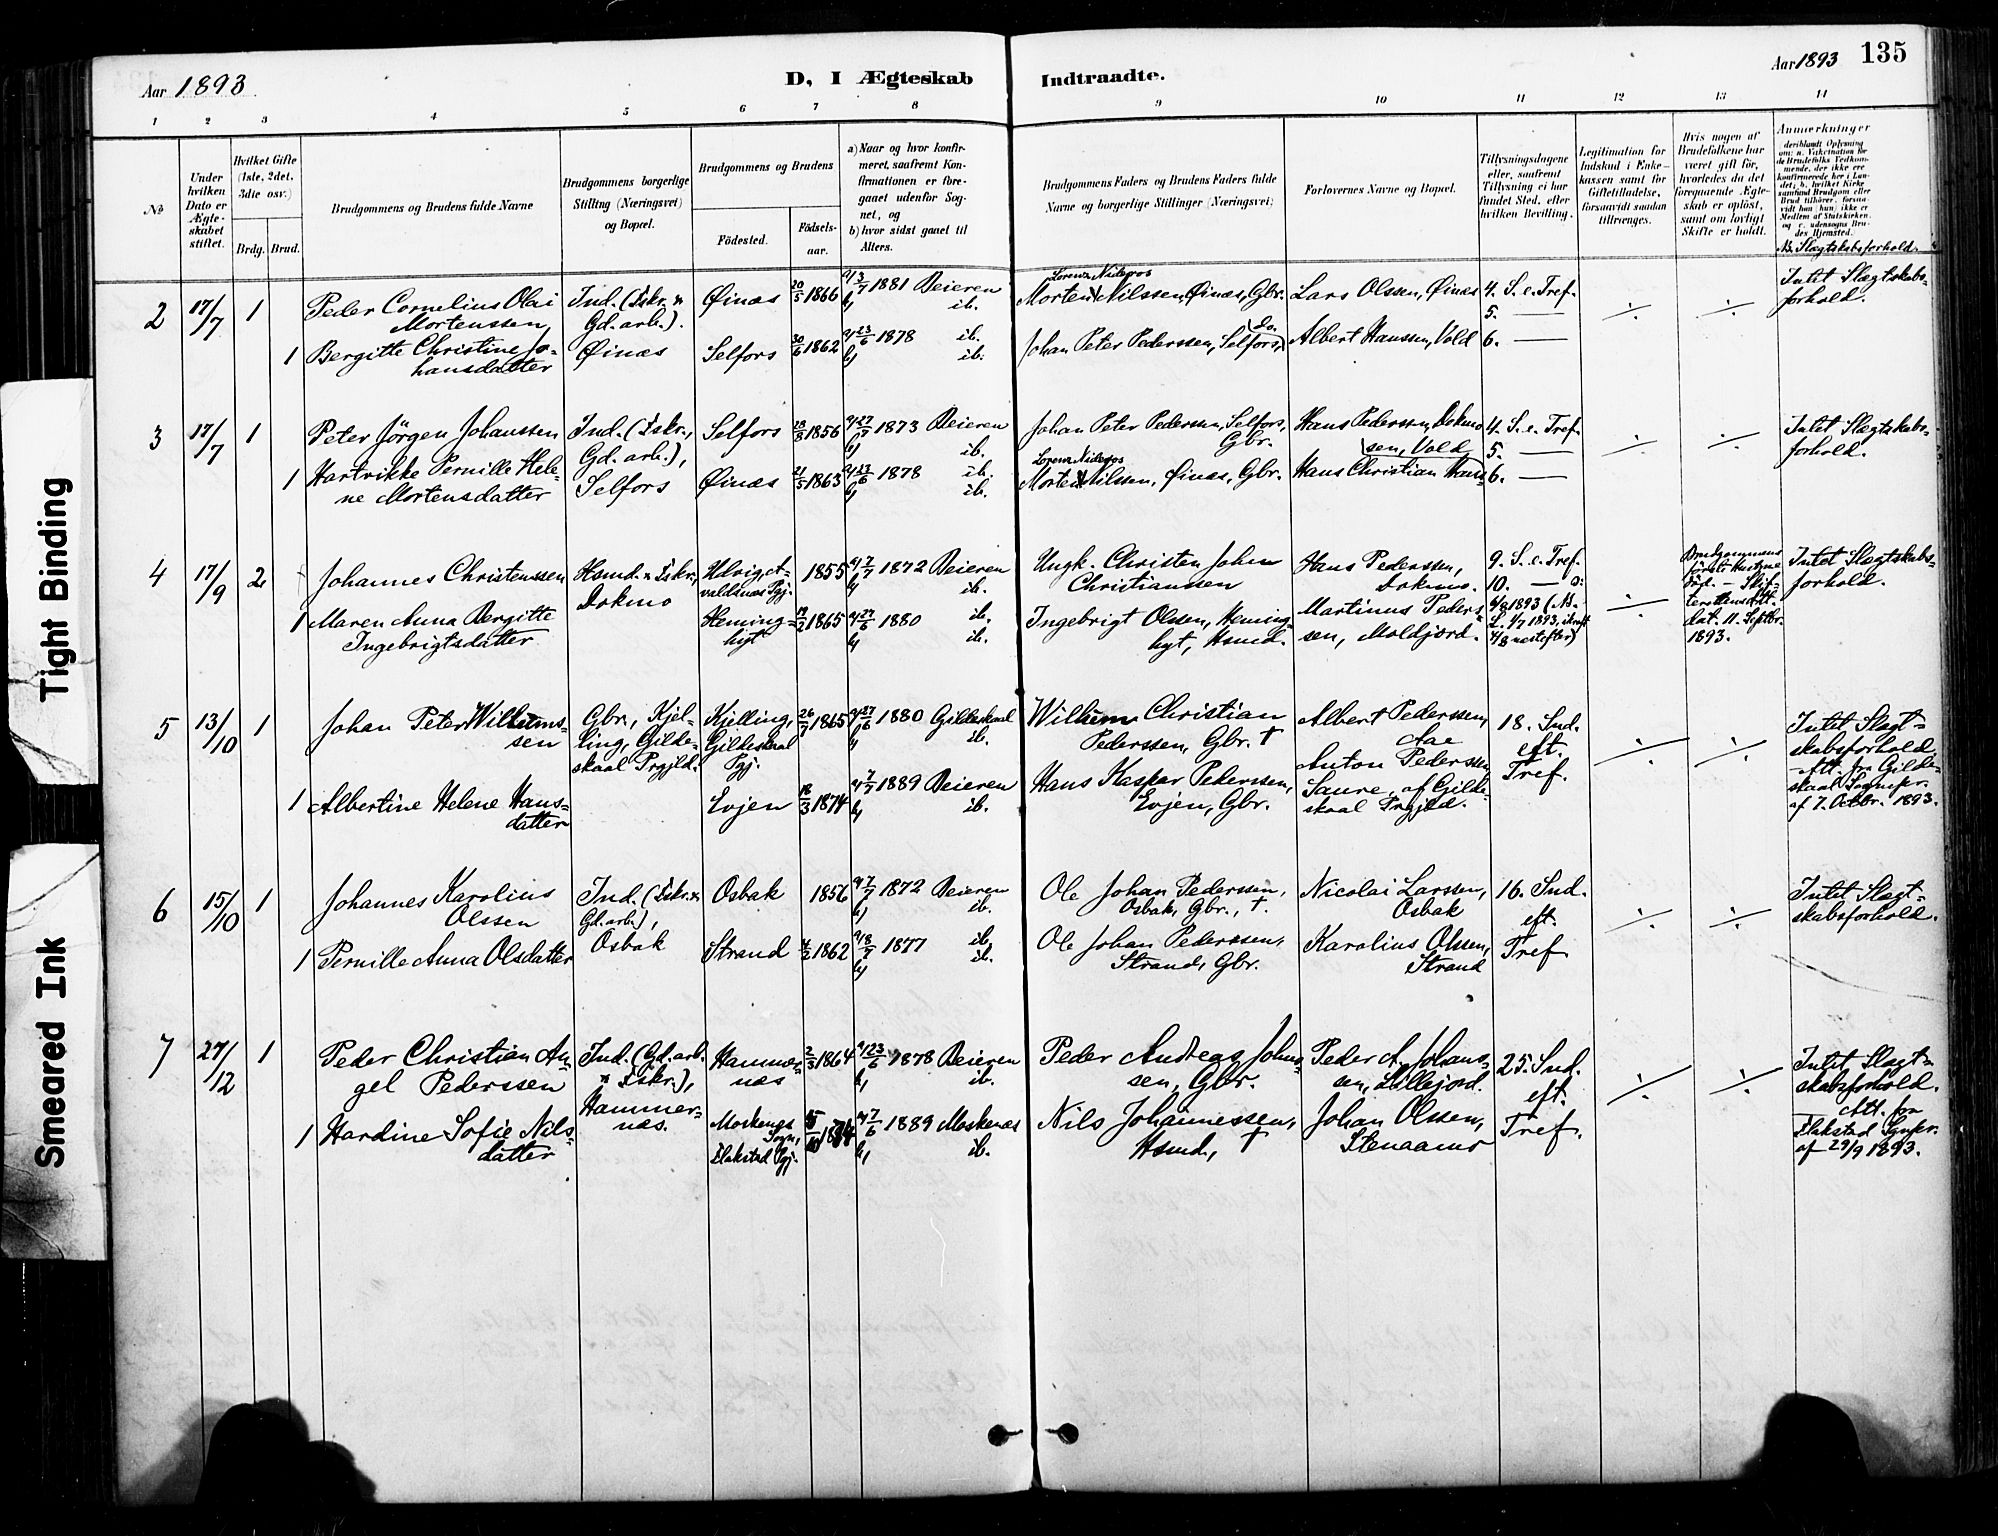 Aar 1893.
D, I Ægteskab
Indtraadte.
Aar 1893
135
1 2 3 4 5 6 7 8 9 10 11 12 13 14
No
Under hvilken Dato er Ægteskabet stiftet.
Hvilket Gifte (1ste, 2det, 3die osv.)
Brdg. Brud.
Brudgommens og Brudens fulde Navne
Brudgommens borgerlige Stilling (Næringsvei) og Bopæl.
Brudgommens og Brudens
Födested.
Födselsaar.
a) Naar og hvor konfirmeret, saafremt Konfirmationen er foregaaet udenfor Sognet, og
b) hvor sidst gaaet til Alters.
Brudgommens Faders og Brudens Faders fulde Navne og borgerlige Stillinger (Næringsvei)
Forlovernes Navne og Bopæl.
Tillysningsdagene eller, saafremt Tillysning ei har fundet Sted, efter hvilken Bevilling.
Legitimation for Indskud i Enkekassen samt for Giftetilladelse, forsaavidt saadan tiltrænges.
Hvis nogen af Brudefolkene har været gift för, hvorledes da det foregaaende Ægteskab er oplöst, samt om lovligt Skifte er holdt.
Anmærkninger
deriblandt Oplysning om: a. Vakcination for de Brudefolks Vedkommende, der ikke ere konfirmerede her i Landet; b. hvilket Kirkesamfund Brudgom eller Brud tilhører, forsaavidt han (hun) ikke er Medlem af Statskirken, og c. udensogns Brudes Hjemsted.
Nb. Slægtskabsforhold.
2 17/7 1 Peder Cornelius Olai Mortenssen Ind. (Fskr. & Gd. arb.). Øinæs Øinæs 20/5 1866 a) 3/7 1881 Beieren b) ib. Morten Lorenz Nideros Nilssen, Øinæs, Gbr. Lars Olssen, Øinæs 4. S. e. Tref. ÷ ÷ Intet Slægtskabsforhold.
1 Bergitte Christine Johansdatter Selfors 30/6 1862 a) 23/6 1878 ib. b) ib. Johan Peter Pederssen, Selfors, do. Albert Hanssen, Vold 5. — 6. —
3 17/7 1 Peter Jörgen Johanssen Ind. (Fskr., Gd. arb.), Selfors Selfors 28/8 1856 a) 27/7 1873 Beieren b) ib. Johan Peter Pederssen, Selfors, Gbr. Hans Pederssen Dokmo 4. S. e. Tref. ÷ ÷ Intet Slægtskabsforhold.
1 Hartvikke Pernille Helene Mortensdatter Øinæs 21/5 1863 a) 23/6 1878 ib. b) ib. Morten Lorenz Nideros Nilssen, Øinæs, Gbr. Hans Christian Hanssen, Vold 5. — 6. —
4 17/9 2 Johannes Christenssen Hsmd. & Fskr., Dokmo 1855 a) 7/7 1872 Beieren b) ib. Ungk. Christen John Christianssen Hans Pederssen, Dokmo. 9. S. e. Tref. 10. — ÷ Brudgommens først Hustrue død. 11. Septbr. 1893. Intet Slægtskabsforhold.
1 Maren Anna Bergitte Ingebrigtsdatter Heminghyt 19/2 1865 a) 27/6 1880 ib. b) ib. Ingebrigt Olssen, Heminghyt, Hsmd. Martinus Pederssen, Moldjord.
5 13/10 1 Johan Peter Wilhelmssen Gbr., Kjelling, Gildeskaal Prgjld. Kjelling, Gildeskaal Pgj. 26/7 1865 a) 27/6 1880 Gildeskaal b) ib. Wilhem Christian Pederssen, Gbr. † Albert Pederssen, Aae 18. Snd. eft. Tref. ÷ ÷ Intet Slægtskabsforhold. Att. fra Gildeskaal Sognepr. af 7. Octbr. 1893.
1 Albertine Helene Hansdatter Evjen 18/3 1874 a) 7/7 1889 Beieren b) ib. Hans Kaspar Pederssen, Evjen, Gbr. Anton Pederssen Saure, af Gildeskaal Prgjld.
6 15/10 1 Johannes Karolius Olssen Ind. (Fskr. & Gd. arb.), Osbak Osbak 1856 a) 7/7 1872 Beieren b) ib. Ole Johan Pederssen, Osbak, Gbr., †. Nicolai Larssen, Osbak 16. Snd. eft. Tref ÷ ÷ Intet Slægtskabsforhold.
1 Pernille Anna Olsdatter Strand 4/2 1862 a) 8/7 1877 ib. b) ib. Ole Johan Pederssen, Strand, Gbr. Karolius Olssen, Strand
7 27/12 1 Peder Christian Angel Pederssen Ind. (Gd. arb. & Fskr.), Hammernæs. Hammernæs 2/3 1864 a) 23/6 1878 Beieren b) ib. Peder Andreas Johnsen, Gbr. Peder A. Johanssen, Lillejord. 25. Snd. eft. Tref. ÷ ÷ Intet Slægtskabsforhold. Att. fra Flakstad Sgnpr. af 29/9 1893.
1 Hardine Sofie Nilsdatter Moskenes Sogn, Flakstad Pgj. 1874 a) 7/6 1889 Moskenæs b) ib. Nils Johannessen, Hsmd, † Johan Olssen, Stenaamo
Tight Binding
Smeared Ink